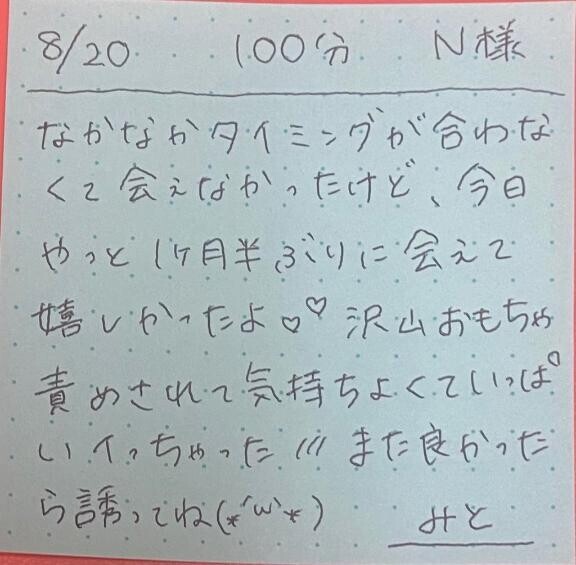 8/20 100分 N様
なかなかタイミングが合わな
くて会えなかったけど、今日
やっと1ヶ月半ぶりに会えて
嬉しかったよ♡♡ 沢山おもちゃ
責めされて気持ちよくていっぱ
いイっちゃった/// また良かった
ら誘ってね(*´ω`*) みと